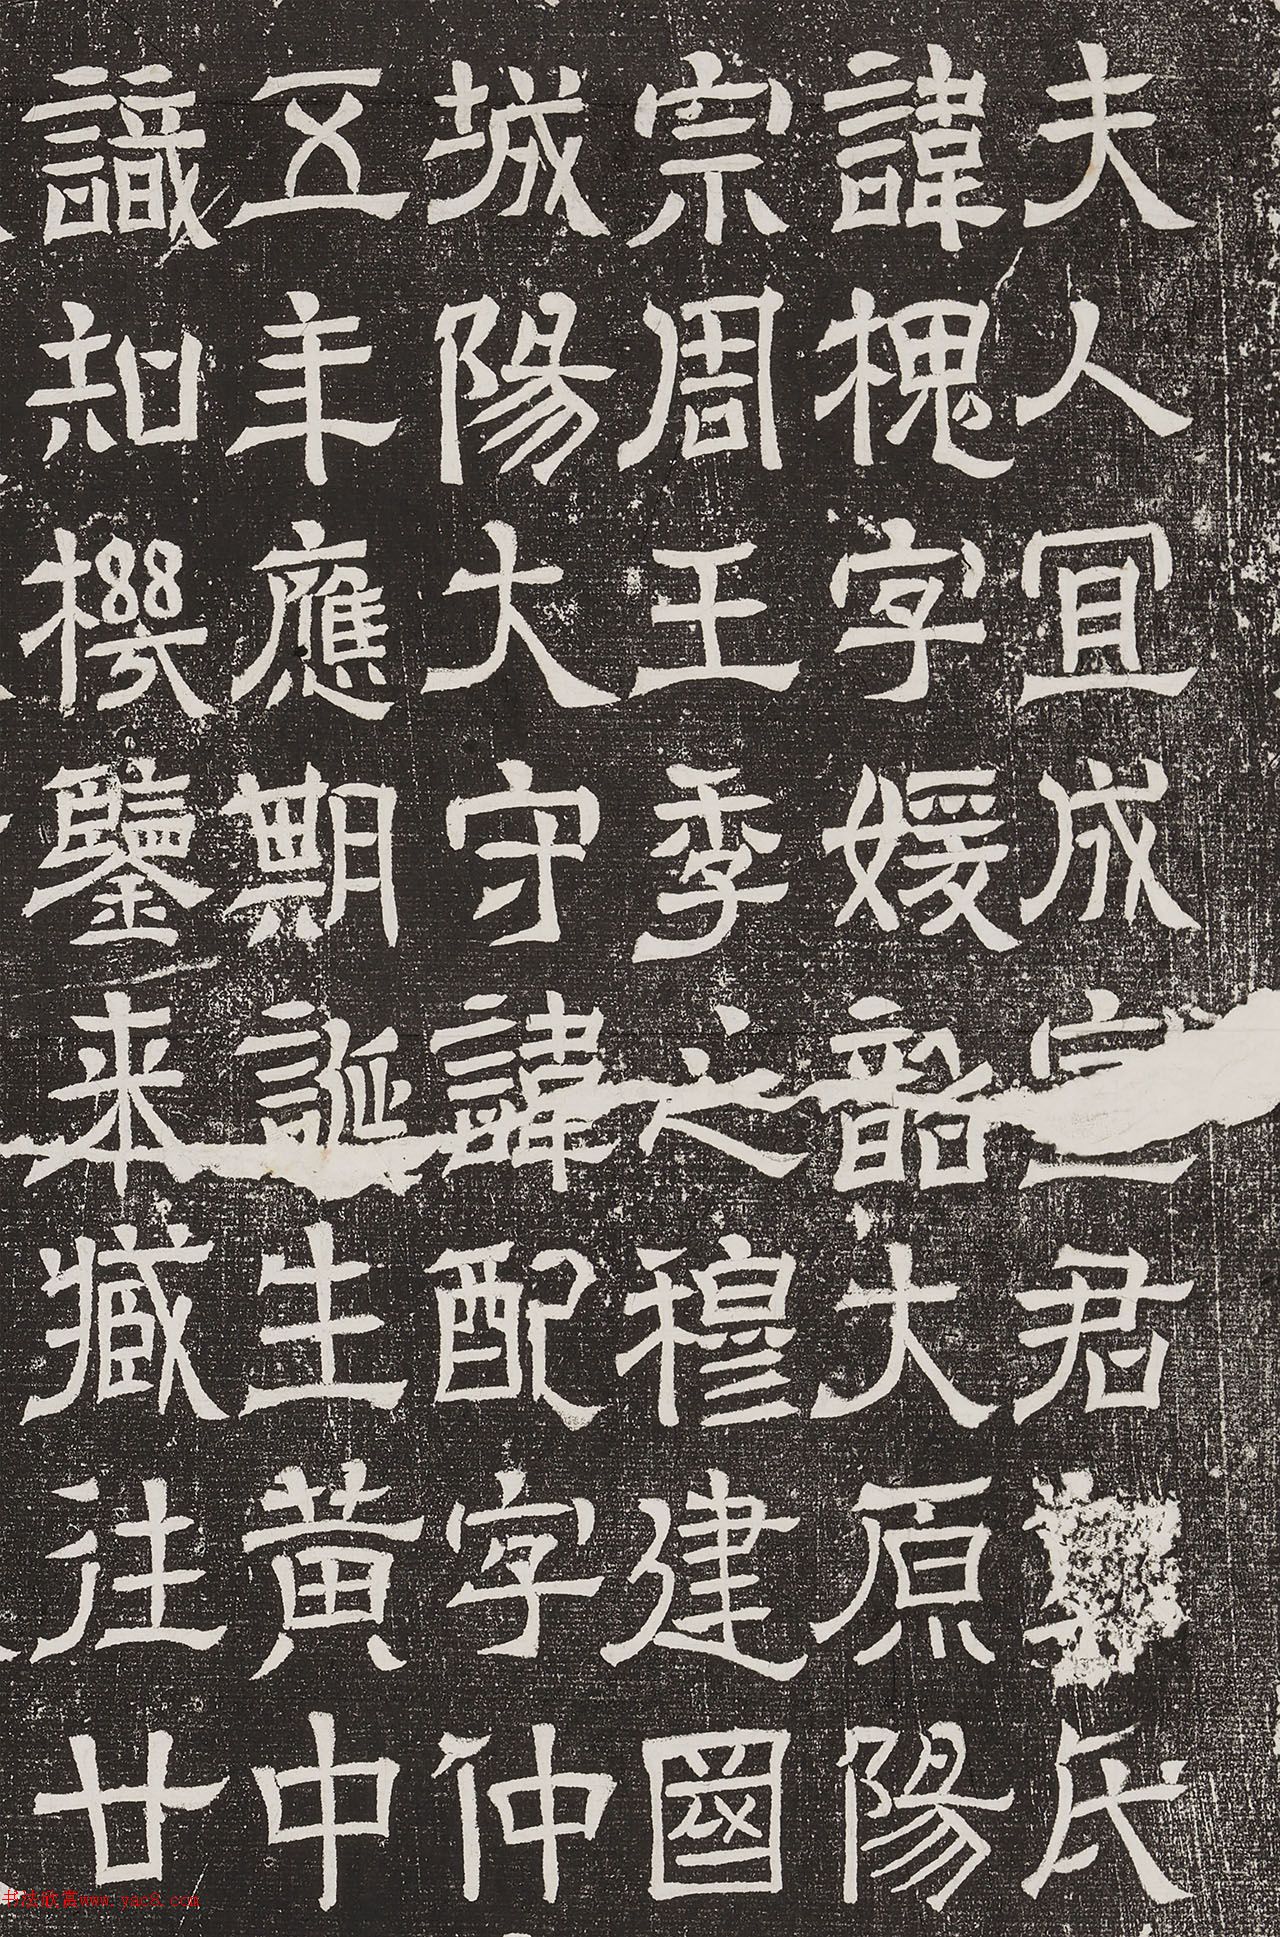 夫人宜成宣君郭氏
諱槐字媛韶大原陽
宗周王季之穆建國
城陽大守諱配字仲
五年應期誕生黃中
識知機鑒来臧往廿
书法欣赏www.yac8.com